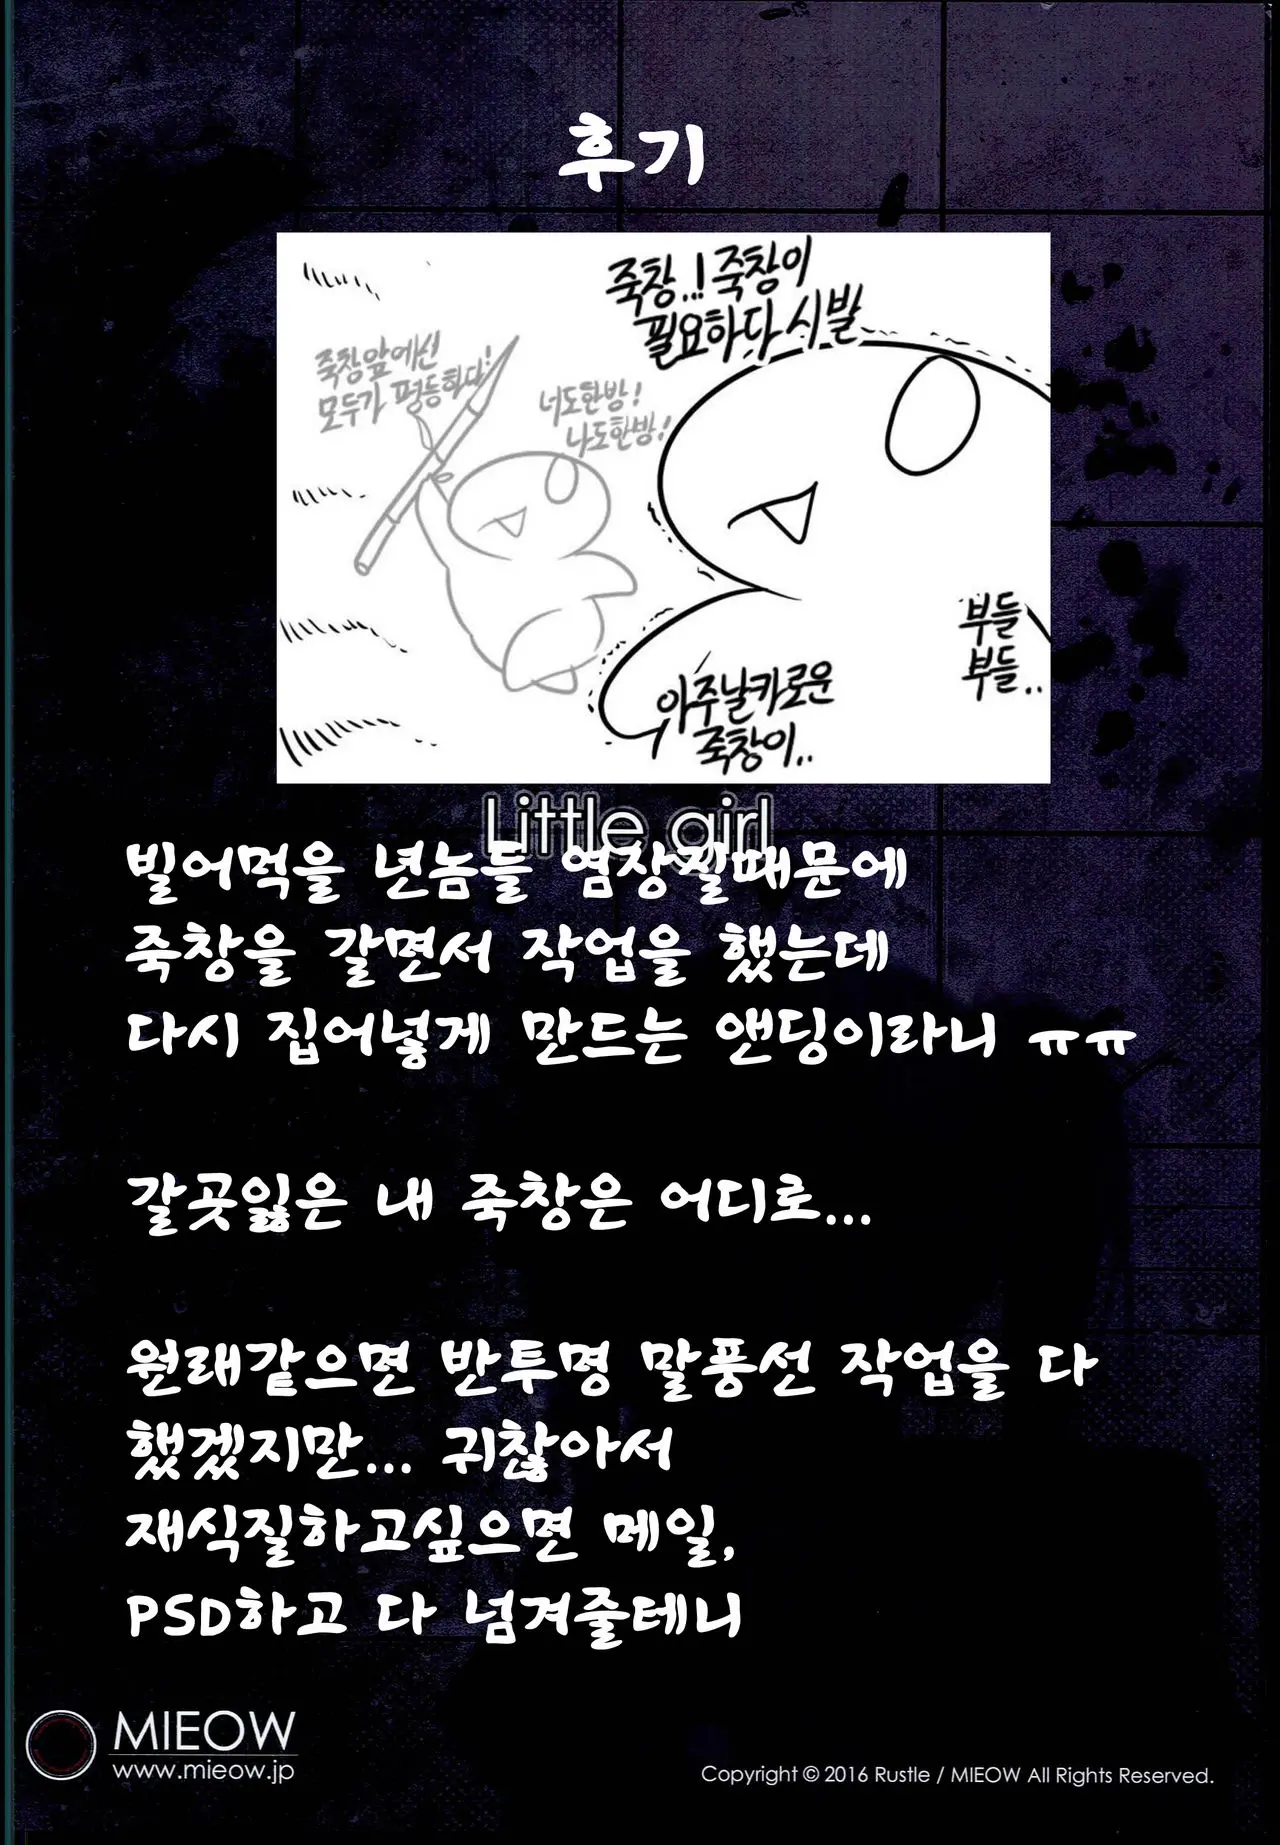 후기
죽창..! 죽창이
필요하다 시발
죽창앞에선
모두가 평등하다!
너도한방!
나도한방!
부들
부들..
아주날카로운
죽창이..
Little girl
빌어먹을 년놈들 염장질때문에
죽창을 갈면서 작업을 했는데
다시 집어넣게 만드는 앤딩이라니 ㅠㅠ
갈곳잃은 내 죽창은 어디로...
원래같으면 반투명 말풍선 작업을 다
했겠지만... 귀찮아서
재식질하고싶으면 메일,
PSD하고 다 넘겨줄테니
MIEOW
www.mieow.jp
Copyright © 2016 Rustle / MIEOW All Rights Reserved.